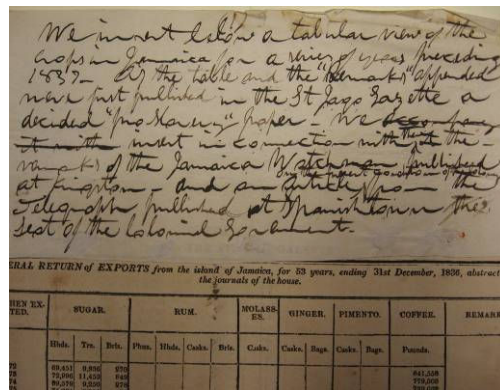 We insert below a tabular view of the
crops in Jamaica for a series of years preceding
1837— As the table and the "Remarks" appended
were first published in the St Jago Gazette a
decided "pro slavery" paper— We accompany
it with insert in connection with it the re-
marks of the Jamaica Watchman published
at Kingston— and an article from the
on the present condition of the colony
Telegraph published at Spanishtown the
Seat of the Colonial Government.
ERAL RETURN of EXPORTS from the island of Jamaica, for 53 years, ending 31st December, 1836, abstract
the journals of the house.
HEN EX-
TED. SUGAR. RUM. MOLASS-
ES. GINGER. PIMENTO. COFFEE. REMARK
Hhds. Trs. Brls. Phns. Hhds. Casks. Brls. Casks. Casks. Bags. Casks. Bags. Pounds.
72 69,451 9,936 270 841,558
73 72,996 11,453 849 779,303